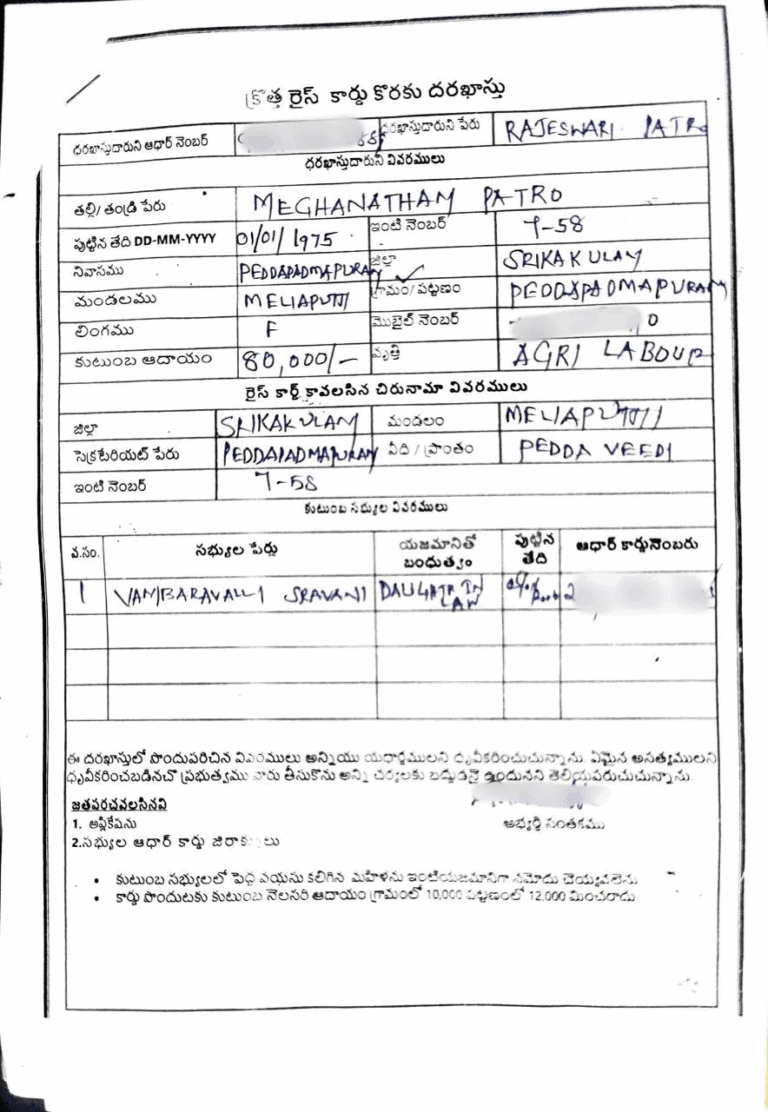 క్రొత్త రైస్ కార్డు కొరకు దరఖాస్తు
దరఖాస్తుదారుని ఆధార్ నెంబర్ దరఖాస్తుదారుని పేరు RAJESWARI PATRO
దరఖాస్తుదారుని వివరములు
తల్లి/ తండ్రి పేరు MEGHANATHAM PATRO
పుట్టిన తేది DD-MM-YYYY 01/01/1975 ఇంటి నెంబర్ 7-58
నివాసము PEDDAPADMAPURAM జిల్లా SRIKAKULAM
మండలము MELIAPUTTI గ్రామం/పట్టణం PEDDAPADMAPURAM
లింగము F మొబైల్ నెంబర్ 0
కుటుంబ ఆదాయం 80,000/- వృత్తి AGRI LABOUR
రైస్ కార్డ్ కావలసిన చిరునామా వివరములు
జిల్లా SRIKAKULAM మండలం MELIAPUTTI
సెక్రటేరియట్ పేరు PEDDAPADMAPURAM వీది / ప్రాంతం PEDDA VEEDI
ఇంటి నెంబర్ 7-58
కుటుంబ సభ్యుల వివరములు
వ.సం. సభ్యుల పేర్లు యజమానితో బంధుత్వం పుట్టిన తేది ఆధార్ కార్డునెంబరు
1 VANJBARAVALLI SRAVANI DAUGHTR IN LAW 2
ఈ దరఖాస్తులో పొందుపరిచిన వివరములు అన్నియు యదార్థములని ధృవీకరించుచున్నాను. ఏమైన అసత్యములని
ధృవీకరించబడినచో ప్రభుత్వము వారు తీసుకొను అన్ని చర్యలకు బద్దుడనై ఉందునని తెలియపరుచుచున్నాను
జతపరచవలసినవి
1. అప్లికేషను అభ్యర్థి సంతకము
2.సభ్యుల ఆధార్ కార్డు జిరాక్సులు
• కుటుంబ సభ్యులలో పెద్ద వయసు కలిగిన మహిళను ఇంటియజమానిగా నమోదు చెయ్యవలెను
• కార్డు పొందుటకు కుటుంబ నెలసరి ఆదాయం గ్రామంలో 10,000 పట్టణంలో 12,000 మించరాదు